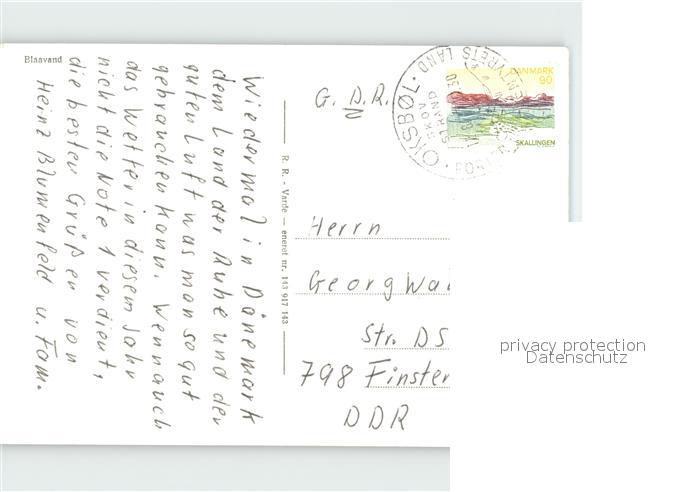 Blaavand
Wiedermal in Dänemark
dem Land der Ruhe und der
guten Luft was man so gut
gebrauchen kann. Wenn auch
das Wetter in diesem Jahr
nicht die Note 1 verdient,
die besten Grüße von
Heinz Blumenfeld u. Fam.
R. R. - Varde — eneret nr. 143 917 143
G. D. R.
OKSBØL
SKOV
STRAND
DANMARK
90
SKALLINGEN
Herrn
Georg Wal
Str. DS
798 Finster
DDR
privacy protection
Datenschutz